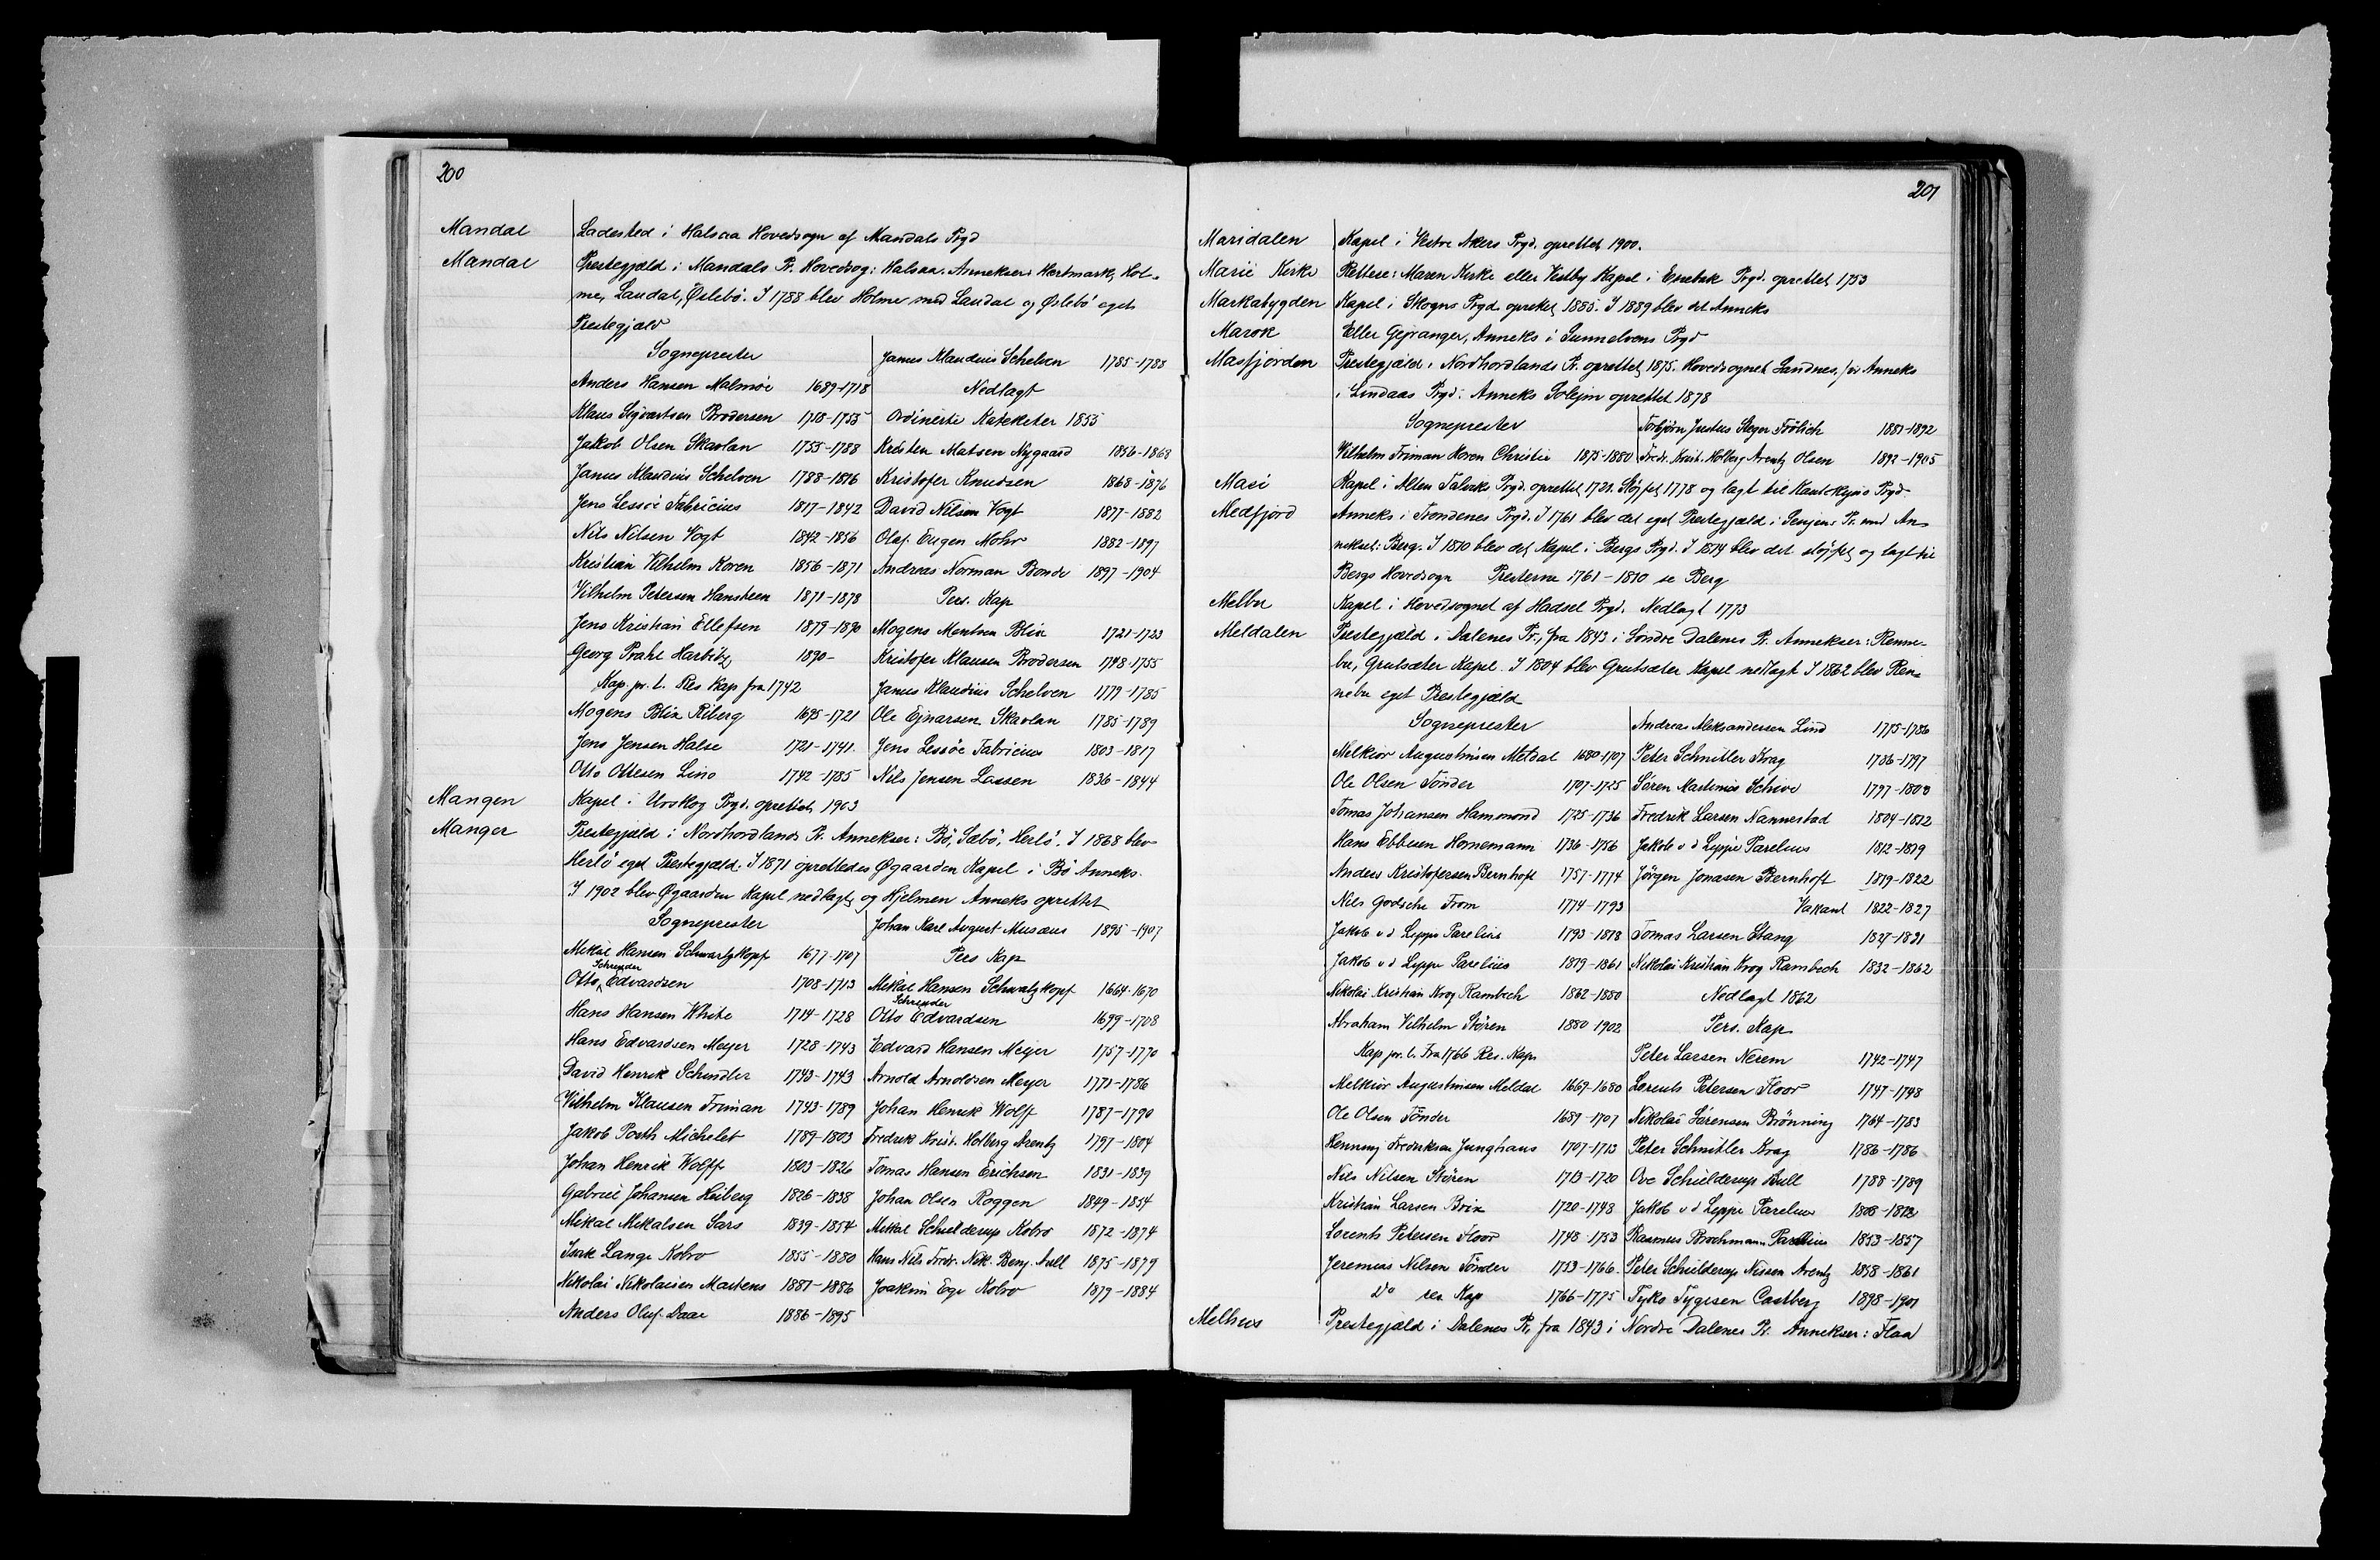 200
Mandal Ladested i Halsaa Hovedsogn af Mandals Prgd
Mandal Prestegjæld i Mandals Pr. Hovedsog: Halsaa. Annekser: Hertmark, Hol-
me, Laudal, Øslebö. I 1788 blev Holme med Laudal og Øslebö eget
Prestegjæld
Sogneprester
Anders Hansen Malmöe 1689-1718
Klaus Sigvartsen Brodersen 1718-1755
Jakob Olsen Skavlan 1755-1788
Janus Klaudius Schelven 1788-1816
Jens Lessöe Fabricius 1817-1842
Nils Nilsen Vogt 1842-1856
Kristian Vilhelm Koren 1856-1871
Vilhelm Petersen Hansteen 1871-1878
Jens Kristian Ellefsen 1879-1890
Georg Prahl Harbitz 1890-
Kap. pr. l. Res Kap fra 1742
Mogens Blix Riberg 1695-1721
Jens Jensen Halse 1721-1741.
Otto Ottesen Lino 1742-1785
Janus Klaudius Schelven 1785-1788
Nedlagt
Ordinerte Kateketer 1855
Kristen Matsen Nygaard 1856-1868
Kristofer Knudsen 1868-1876
David Nilsen Vogt 1877-1882
Olaf Eugen Mohr 1882-1897
Andreas Norman Bonde 1897-1904
Pers. Kap
Mogens Mentsen Blix 1721-1723
Kristofer Klausen Brodersen 1748-1755
Janus Klaudius Schelven 1779-1785
Ole Ejnarsen Skavlan 1785-1789
Jens Lessöe Fabricius 1803-1817
Nils Jensen Lassen 1836-1844
Mangen Kapel i Urskog Prgd. oprettet 1903
Manger Prestegjæld i Nordhordlands Pr. Annekser: Bö, Sæbö, Herlö. I 1868 blev
Herlö eget Prestegjæld. I 1871 oprettedes Øgaarden Kapel i Bö Anneks.
I 1902 blev Øgaarden Kapel nedlagt og Hjelmen Anneks oprettet
Sogneprester
Mikal Hansen Schwartzkopf 1677-1707
Otto Schreuder Edvardsen 1708-1713
Hans Hansen White 1714-1728
Hans Edvardsen Meyer 1728-1743
David Henrik Schindler 1743-1743
Vilhelm Klausen Friman 1743-1789
Jakob Posth Michelet 1789-1803
Johan Henrik Wolff 1803-1826
Gabriel Johansen Heiberg 1826-1838
Mikal Mikalsen Sars 1839-1854
Isak Lange Kobro 1855-1880
Nikolai Nikolaisen Martens 1881-1886
Anders Oluf Daae 1886-1895
Johan Karl August Musæus 1895-1907
Pers Kap
Mikal Hansen Schwatzkopf 1664-1670
Otto Schreuder Edvardsen 1699-1708
Edvard Hansen Meyer 1757-1770
Arnold Arnoldsen Meyer 1771-1786
Johan Henrik Wolff 1787-1790
Fredrik Krist. Holberg Arentz 1797-1804
Tomas Hansen Erichsen 1831-1839
Johan Olsen Roggen 1849-1854
Mikal Schielderup Kobro 1872-1874
Hans Nils Fredr. Nik. Benj. Aall 1875-1879
Joakim Ege Kobro 1879-1884
201
Maridalen Kapel i Vestre Akers Prgd. oprettet 1900.
Marie Kirke Rettere: Maren Kirke eller Vestby Kapel i Enebak Prgd. oprettet 1753
Markabygden Kapel i Skogns Prgd. oprettet 1885. I 1889 blev det Anneks
Marok Eller Gejranger, Anneks i Sunnelvens Prgd
Masfjorden Prestegjæld i Nordhordlands Pr. oprettet 1875. Hovedsognet Sandnes, för Anneks
i Lindaas Prgd. Anneks Solejm oprettet 1878
Sogneprester
Vilhelm Friman Koren Christie 1875-1880
Torbjörn Justus Steger Frölich 1881-1892
Fredr. Krist. Holberg Arentz Olsen 1892-1905
Masi Kapel i Alten Talviks Prgd. oprettet 1721. Slöjfet 1778 og lagt til Kautokejno Prgd.
Medfjord Anneks i Trondenes Prgd. I 1761 blev det eget Prestegjæld i Senjens Pr. med An-
nekset: Berg. I 1810 blev det Kapel i Bergs Prgd. I 1814 blev det slöjfet og lagt til
Bergs Hovedsogn Presterne 1761-1810 se Berg
Melbu Kapel i Hovedsognet af Hadsel Prgd. Nedlagt 1773
Meldalen Prestegjæld i Dalenes Pr., fra 1843 i Søndre Dalenes Pr. Annekser: Renne-
bu, Grutsæter Kapel. I 1804 blev Grutsæter Kapel nedlagt I 1862 blev Ren-
nebu eget Prestegjæld
Sogneprester
Melkior Augustinsen Meldal 1680-1707
Ole Olsen Tönder 1707-1725
Tomas Johansen Hammond 1725-1736
Hans Ebbesen Hornemann 1736-1756
Anders Kristofersen Bernhoft 1757-1774
Nils Godsche From 1774-1793
Jakob v d Lippe Parelius 1793-1818
Jakob v d Lippe Parelius 1819-1861
Nikolai Kristian Krog Rambech 1862-1880
Abraham Vilhelm Stören 1880-1902
Kap pr. l. Fra 1766 Res. Kap
Melkior Augustinsen Meldal 1669-1680
Ole Olsen Tönder 1689-1707
Henning Fredriksen Junghans 1707-1713
Nils Nilsen Stören 1713-1720
Kristian Larsen Brix 1720-1748
Lorents Petersen Floor 1748-1753
Jeremias Nilsen Tönder 1753-1766.
Do res Kap 1766-1775
Andreas Aleksandersen Lind 1775-1786
Peter Schnitler Krag 1786-1797
Sören Martinius Schive 1797-1803
Fredrik Larsen Nannestad 1804-1812
Jakob v d Lippe Parelius 1812-1819
Jörgen Jonasen Bernhoft 1819-1822
Vakant 1822-1827
Tomas Larsen Stang 1827-1831
Nikolai Kristian Krog Rambech 1832-1862
Nedlagt 1862
Pers. Kap.
Peter Larsen Nerem 1742-1747
Lorents Petersen Floor 1747-1748
Nikolai Sörensen Brönning 1764-1783
Peter Schnitler Krag 1786-1786
Ove Schielderup Bull 1788-1789
Jakob v d Lippe Parelius 1808-1812
Rasmus Brochmann Parelius 1853-1857
Peter Schielderup Nissen Arentz 1858-1861
Tyko Tygesen Castberg 1898-1901
Melhus Prestegjæld i Dalenes Pr, fra 1843 i Nordre Dalenes Pr. Annekser: Flaa